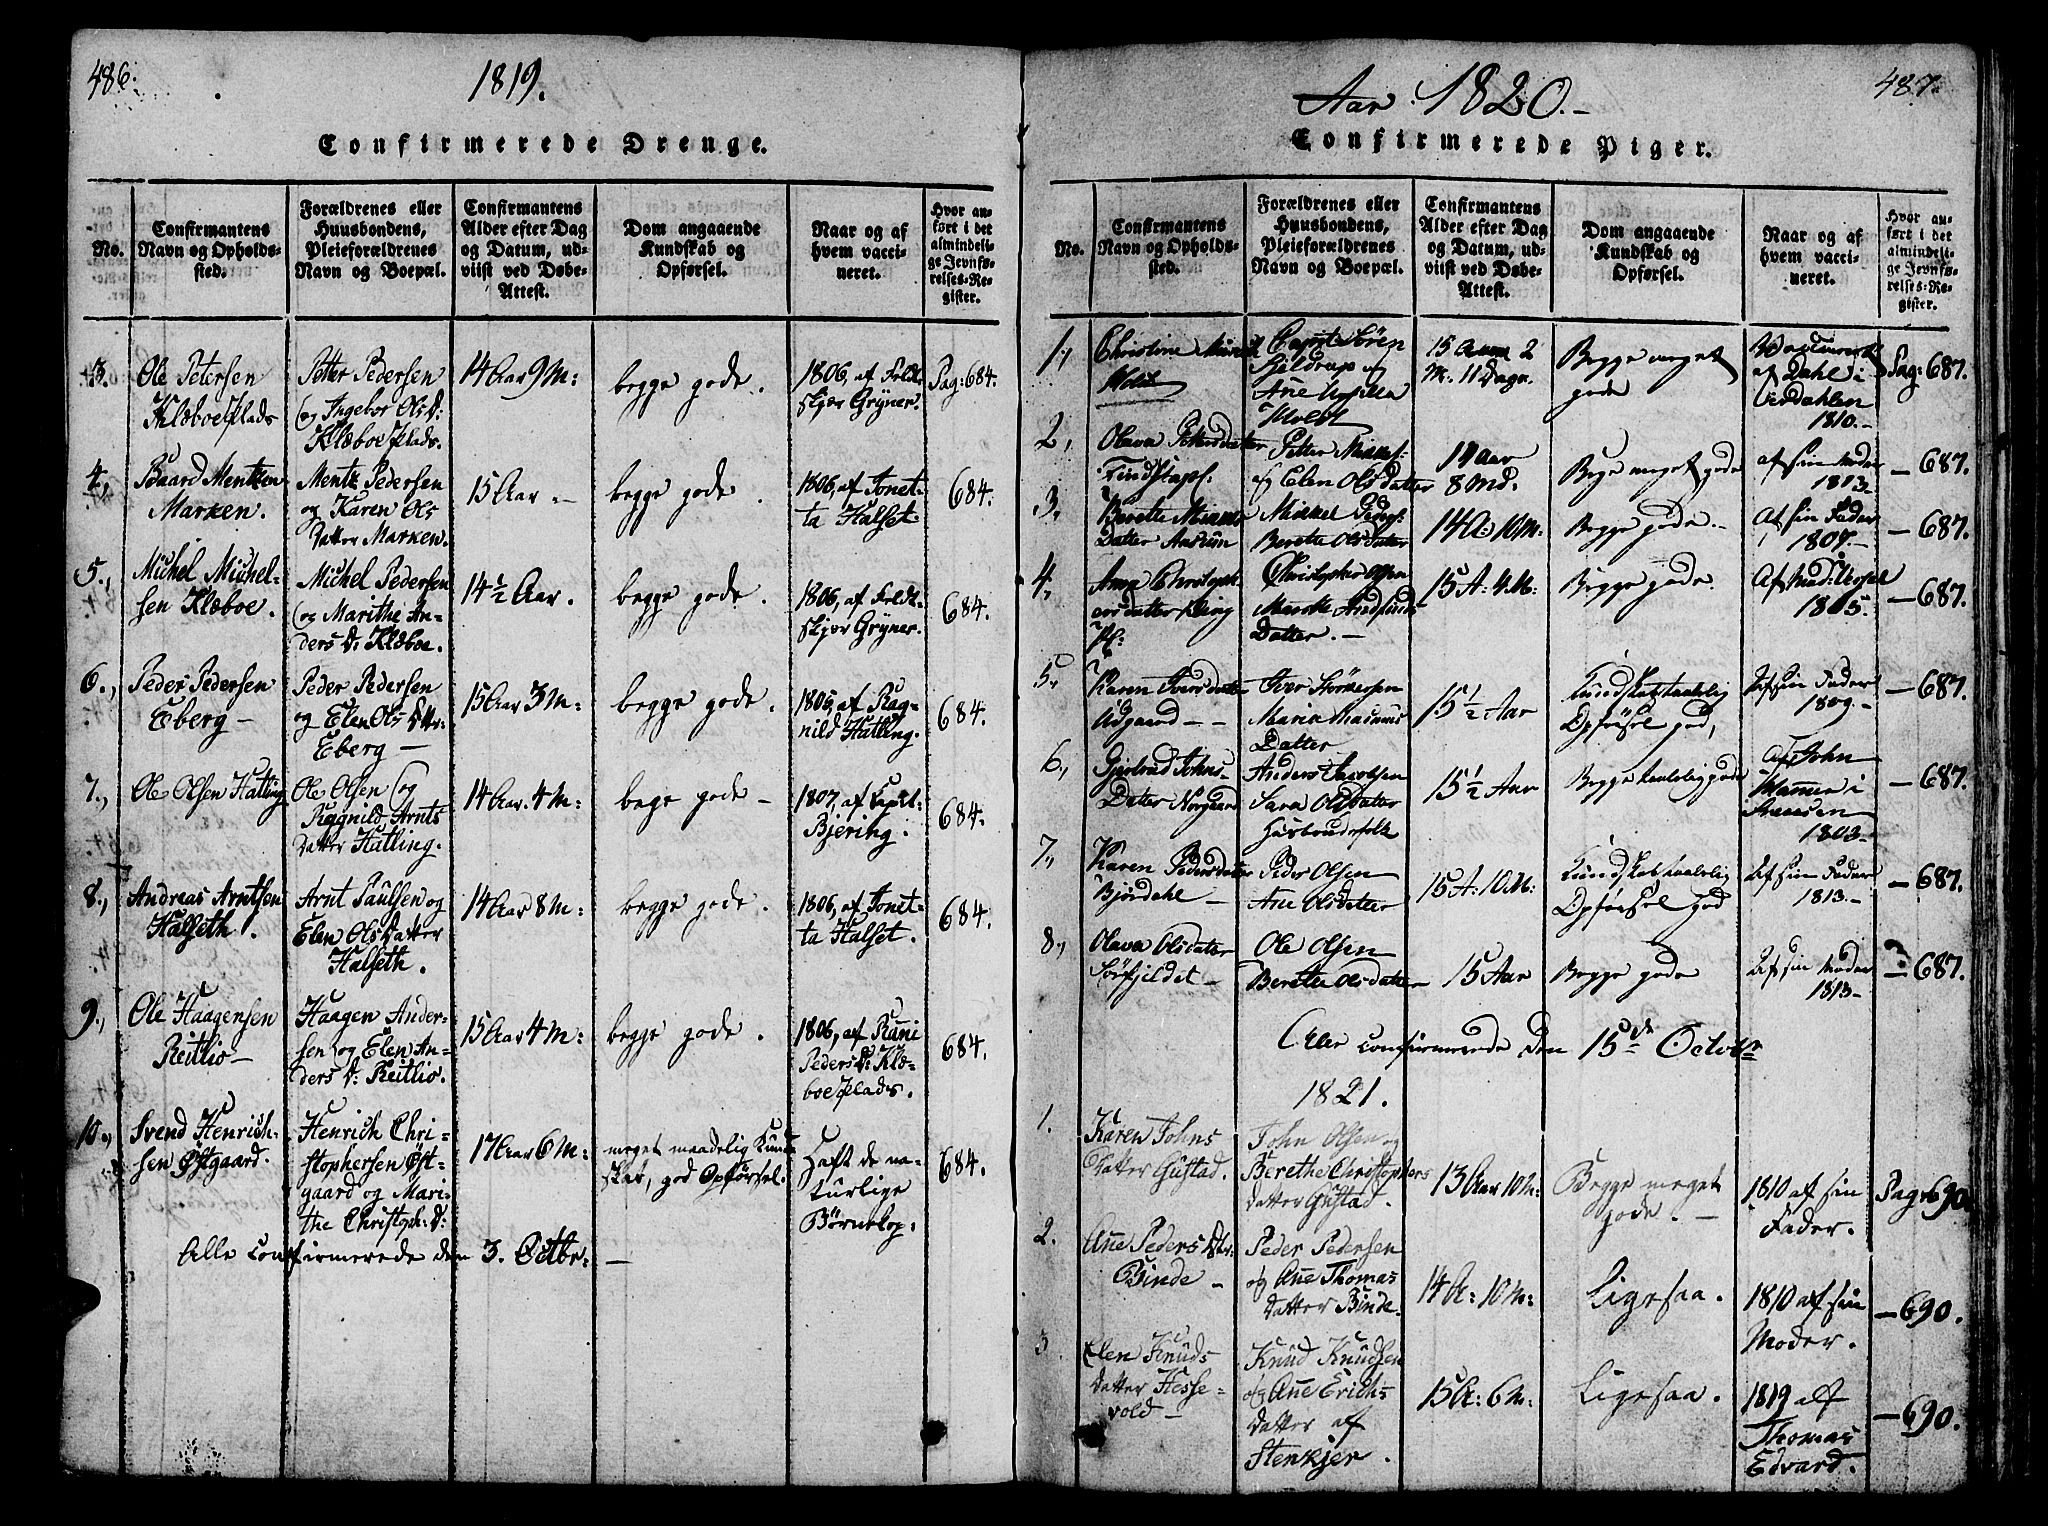 486.
1819.
Confirmerede Drenge.
No.
Confirmantens
Navn og Opholds-
sted.
Forældrenes eller
Huusbondens,
Pleieforældrenes
Navn og Boepæl.
Confirmantens
Alder efter Dag
og Datum, ud-
viist ved Døbe-
Attest.
Dom angaaende
Kundskab og
Opførsel.
Naar og af
hvem vacci-
neret.
Hvor an-
ført i det
almindeli-
ge Jevnfø-
relses-Re-
gister.
3.
Ole Petersen
Klæboe Plads
Petter Pedersen
og Ingebor Ols D:
Klæboe Plads.
14 Aar 9 M:
begge gode.
1806, af Feldt-
skjær Gryner.
Pag: 684.
4.,
Baard Mentzen
Marken.
Mentz Pedersen
og Karen Ols
Datter Marken.
15 Aar. -
begge gode.
1806, af Jonet-
ta Halset.
684.
5.,
Michel Michel-
sen Klæboe.
Michel Pedersen
og Marithe An-
ders D: Klæboe.
14 ½ Aar.
begge gode.
1806, af Feldt-
skjær Gryner.
684.
6.,
Peder Pedersen
Eberg -
Peder Pedersen
og Elen Ols Dtr.
Eberg -
15 Aar 3 M:
begge gode.
1805, af Rag-
nild Hatling.
684.
7.,
Ole Olsen Hatling
Ole Olsen og
Ragnild Arnts
Datter Hatling.
14 Aar. 4 M:
bege gode -
1807, af Capit:
Bjering.
684.
8.,
Andreas Arntsen
Halseth.
Arnt Paulsen og
Elen Ols Datter
Halseth.
14 Aar 8 M:
begge gode.
1806, af Jonet-
ta Halset.
684.
9.,
Ole Haagensen
Reitlio -
Haagen Ander-
sen og Elen An-
ders D: Reitlio.
15 Aar 4 M:
begge gode.
1806, af Rani
Peders D: Klæ-
boe Plads.
684.
10.,
Svend Henrich-
sen Østgaard.
Henrich Chri-
stophersen Øst-
gaard og Mari-
the Christoph: D:
17 Aar 6 M:
meget maadelig Kund-
skab, god Opførsel.
Haft de na-
turlige
Børnekop:
684.
Alle Confirmerede den 3. Octbr: -
487.
Aar 1820. -
Confirmerede Piger.
No.
Confirmantens
Navn og Opholds-
sted.
Forældrenes eller
Huusbondens,
Pleieforældrenes
Navn og Boepæl.
Confirmantens
Alder efter Dag
og Datum, ud-
viist ved Døbe-
Attest.
Dom angaaende
Kundskab og
Opførsel.
Naar og af
hvem vacci-
neret.
Hvor an-
ført i det
almindeli-
ge Jevnfø-
relses-Re-
gister.
1.,
Christine
Capit Sören
Geldrup og
Ane
Moldt
15 Aar 2
M. 11 Dage.
Begge meget
gode
af Dahl i
Verdahlen
1810. -
Pag: 687.
2,
Olava Pettersdatter
Petter
og Elen Olsdatter
14 Aar
8 Md.
Bege meget gode
af sin Moder
1813 -
- 687.
3.
Berette
Datter
Mikkel
Berette Olsdatter
14 A: 10 M:
Begge gode. -
Af sin Fader
1807. -
- 687.
4.
Anne Christoph-
ersdatter
Pl:
Christopher Olsen
Marethe
Datter. -
15 A: 4 M:
Begge gode.
1805.
- 687.
5.
Karen Iversdatter
Iver
Maria
Datter
15 ½ Aar
Kundskab taalelig
Opførsel god,
Af sin Fader
1809. -
- 687.
6.,
Gjertrud Johns-
Datter Norgaard
Anders Jacobsen
Sara Olsdatter
Huusbondsfolk
15 ½ Aar
Begge taalelig gode
Af John
i
1803. -
- 687.
7.,
Karen Pedersdatter
Bjørdahl -
Peder Olsen
Ane Olsdatter
15 A: 10 M:
Kundskab taalelig
Opførsel god
Af sin Fader
1813. -
- 687.
8.,
Olava Olsdatter
Sörfjeldet -
Ole Olsen
Berette Olsdatter
15 Aar
Begge gode
Af sin Moder
1813 -
- 687.
Alle confirmerede den 15de Octobr
1821.
1.
Karen Johns
Datter Gustad.
John Olsen og
Berethe Christophers
Datter Gustad.
13 Aar 10 M:
Begge meget
gode. -
1810 af sin
Fader.
Pag: 690
2.
Ane Peders Dtr:
Binde -
Peder Pedersen
og Ane Thomas
Datter Binde.
14 A: 10 M:
Ligesaa.
1810 af sin
Moder.
- 690.
3
Elen Knuds
Datter Hesse-
vold -
Knud Knudsen
og Ane Erichs
Datter af
Stenkjer.
15 A: 6 M:
Ligesaa.
1819 af
Thomas
Edvard.
- 690.